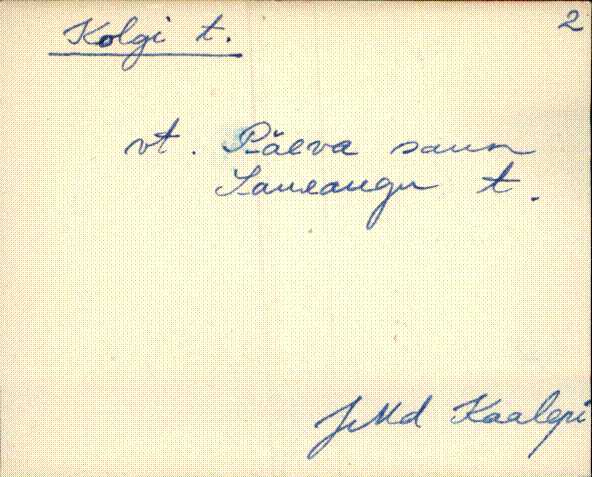 Kolgi t.
2
vt. Päeva saun
Laureaugu t.
JMd Kaalepi